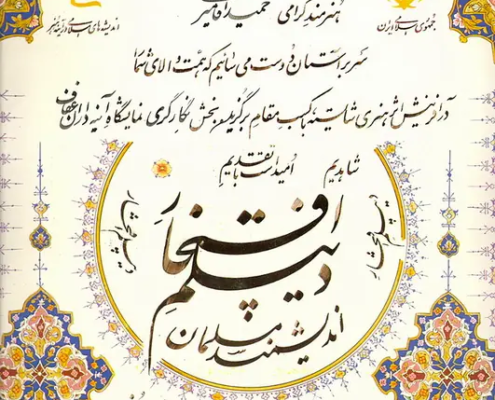 هنرمند گرامی حمید
جمهوری اسلامی ایران
اندیشه‌های اسلامی
سر بر آستان دوست می‌سائیم که همت والای شما
در آفرینش اثر هنری شایسته با کسب مقام برگزیده در بخش نگارگری نمایشگاه آینه داران عفاف
شاهدیم امید است با تقدیم
دیپلم افتخار
اندیشمند مسلمان